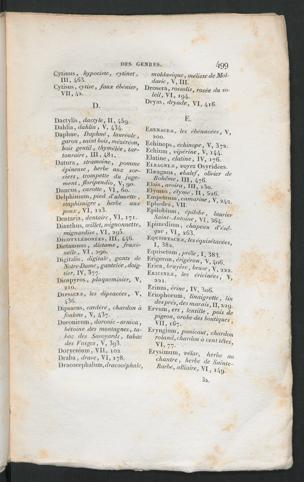 DES GENRES. 499
Cytinus, hypociste, cytinet,
III, 463.
Cytisus, cytise, faux ébénier,
VII, 42.
D.
Dactylis, dactyle, II, 489.
Dahlia, dahlia, V, 434.
Daphne, Daphné, lauréole,
garou, saint bois, mézéréon,
bois gentil, thymélée, tar-
tonraire, III, 481.
Datura, stramoine, pomme
épineuse, herbe aux sor-
ciers, trompette du juge-
ment, floripendio, V, 90.
Daucus, carotte, VI, 60.
Delphinium, pied d'alouette,
staphisaigre, herbe aux
poux, VI, 223.
Dentaria, dentaire, VI, 171.
Dianthus, œillet, mignonnette,
mignardise, VI, 295.
DICOTYLÉDONÉES, III, 446.
Dictamnus, dictame, fraxi-
nelle, VI, 290.
Digitalis, digitale, gants de
Notre-Dame, gantelée, doig-
tier, IV, 377.
Diospyros, plaqueminier, V,
210.
DIPSACEÆ, les dipsacées, V,
486.
Dipsacus, cardère, chardon à
foulon, V, 487.
Doronicum, doronic-arnica,
bétoine des montagnes, ta-
bac des Savoyards, tabac
des Vosges, V, 393.
Dorycnium, VII, 102
Draba, drave, VI, 178.
Dracocephalum, dracocéphale,
moldavique, mélisse de Mol-
davie, V, III.
Drosera, rossolis, rosée du so-
leil, VI, 194.
Dryas, dryade, VI, 416.
E.
EBENACEÆ, les ébénacées, V,
200.
Echinops, echinope, V, 372.
Echium, vipérine, V, 144.
Elatine, elatine, IV, 176.
ELEAGNEÆ, voyez Osyridees.
Elæagnus, chalef, olivier de
Bohême, III, 476.
Elais, avoira, III, 230.
Elymus, élyme, II, 526.
Empetrum, camarine, V, 242.
Ephedra, VII
Epilobium, épilobe, laurier
Saint-Antoine, VI, 364.
Epimedium, chapeau d'évê-
que, VI, 263.
EQUISETACEÆ, les équisétacées,
I, 382.
Equisetum, prêle, I, 383.
Erigeron, érigéron, V, 406.
Erica, bruyère, breuse, V, 222.
ERICINEÆ, les éricinées, V,
221.
Erinus, érine, IV, 306.
Eriophorum, linaigrette, lin
des prés, des marais, II, 229.
Ervum, ers, lentille, pois de
pigeon, arobe des boutiques,
VII, 167.
Eryngium, panicaut, chardon
roland, chardon à cent têtes,
VI, 77.
Erysimum, vélar, herbe au
chantre, herbe de Sainte-
Barbe, alliaire, VI, 149.
32.